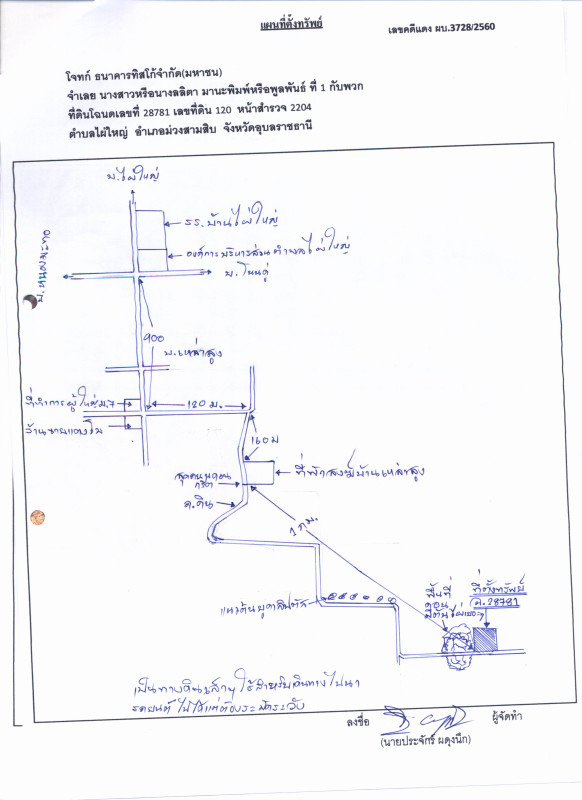 แผนที่ตั้งทรัพย์
เลขคดีแดง ผบ.3728/2560
โจทก์ ธนาคารทิสโก้จำกัด(มหาชน)
จำเลย นางสาวหรือนางลลิตา มานะพิมพ์หรือพูลพันธ์ ที่ 1 กับพวก
ที่ดินโฉนดเลขที่ 28781 เลขที่ดิน 120 หน้าสำรวจ 2204
ตำบลไผ่ใหญ่ อำเภอม่วงสามสิบ จังหวัดอุบลราชธานี
บ.ไผ่ใหญ่
รร.บ้านไผ่ใหญ่
องค์การบริหารส่วนตำบลไผ่ใหญ่
บ.โนนคู่
900
บ.เหล่าสูง
ที่ทำการผู้ใหญ่ ม.7
120 ม.
160 ม
ที่พักสงฆ์บ้านเหล่าสูง
ค.ดิน
1 กม.
แนวต้นยูคาลิปตัส
ที่ตั้งทรัพย์
ฉ.28781
เป็นทางดินเล็กๆ ใช้สำหรับเดินทางไปนา
รถยนต์ไปได้แต่ต้องระมัดระวัง
ลงชื่อ
ผู้จัดทำ
(นายประจักร์ ผดุงนึก)